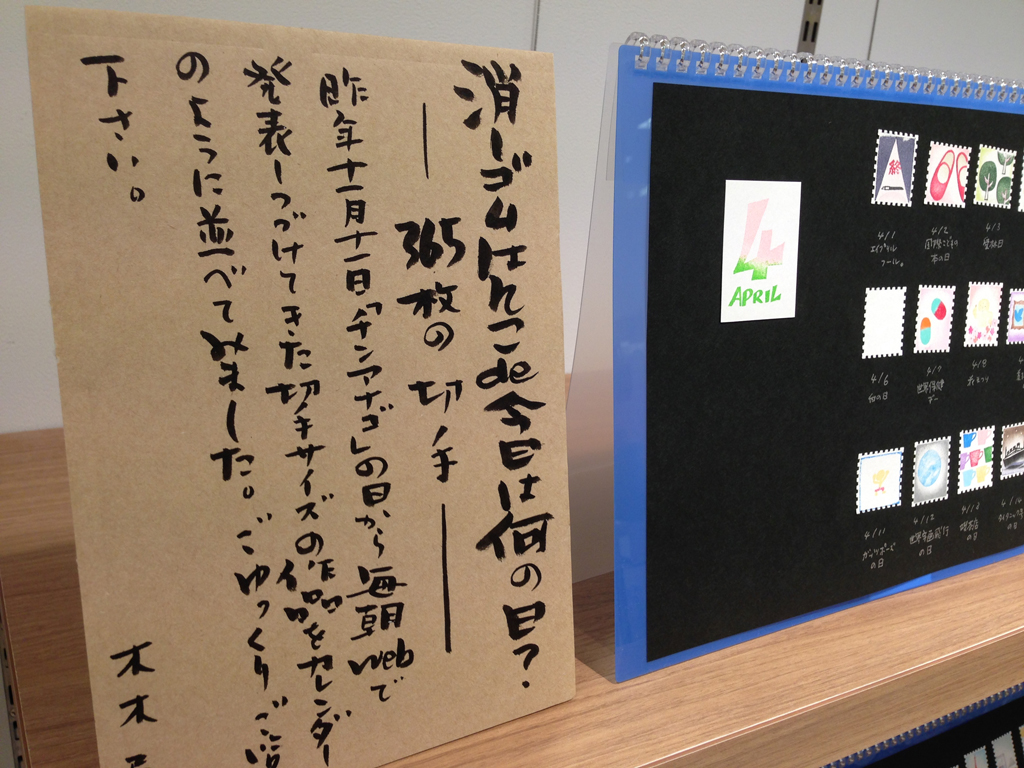 消しゴムはんこde今日は何の日？
― 365枚の切手 ―
昨年十一月十一日「チンアナゴ」の日から毎朝webで
発表しつづけてきた切手サイズの作品をカレンダー
のように並べてみました。ごゆっくりご
下さい。
木木
4
APRIL
終
4/1
エイプリル
フール。
4/2
国際こどもの
本の日
4/3
4/6
4/7
世界保健
デー
4/8
花まつり
4/11
ガッツポーズ
の日
4/12
世界宇宙飛行
の日
4/13
喫茶店
の日
4/14
の日